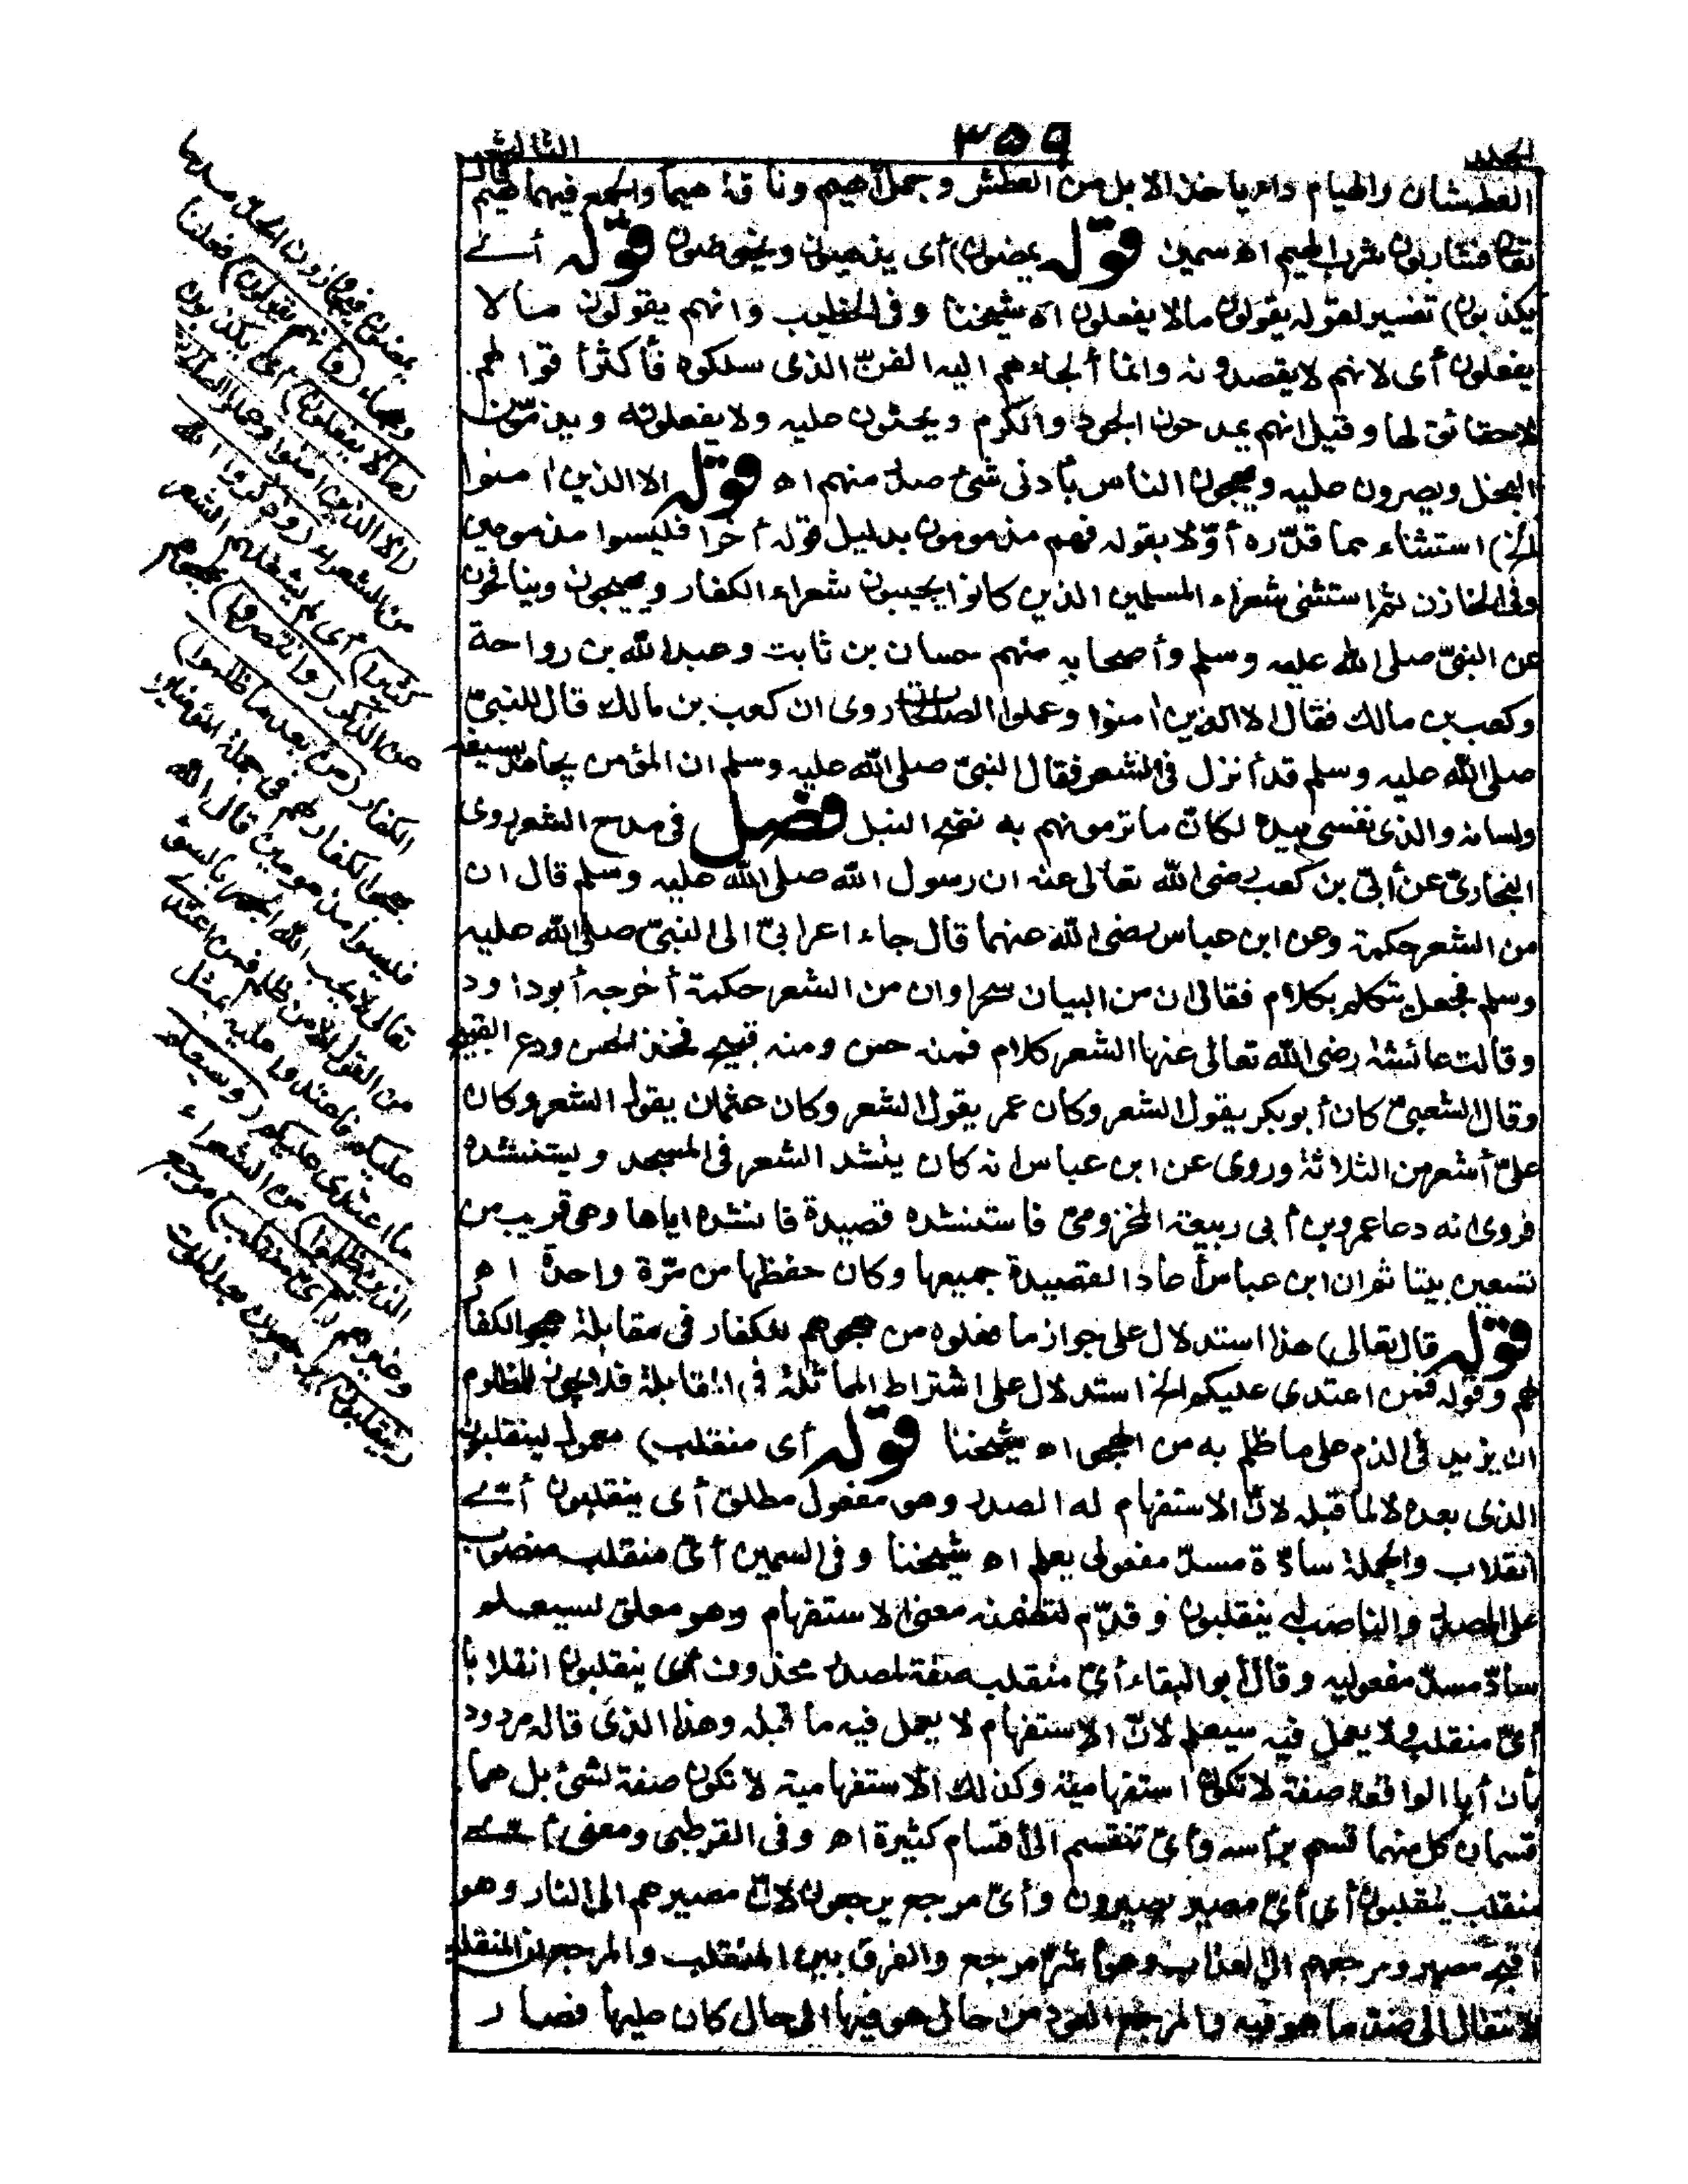 الجلد
٣٥٩
الثالث
العطشان والهيام داء ياخذ الابل من العطش وجمل أهيم وناقة هيماً والجمع فيهما هيم قال
تعالى فشاربون شرب الهيم اه سمين قوله يمضون) أى يذهبون ويخوضون قوله أے
يكذبون) تفسير لقوله يقولون مالا يفعلون اه شيخنا وفى الخطيب وانهم يقولون مالا
يفعلون أى لانهم لا يقصدونه وانما ألجاءهم اليه الفنّ الذى سلكوه فأكثرأقوالهم
لاحقائق لها وقيل انهم يمدحون الجود والكرم ويحثون عليه ولا يفعلونه ويذمّون
البخل ويصرون عليه ويهجون الناس بأدنى شئ صدر منهم اه قوله الا الذين امنوا
الخ) استثناء مما قدّره أوّلا بقوله فهم مذمومون بدليل قوله أخرا فليسوا مذمومين
وفى الخازن ثم استثنى شعراء المسلمين الذين كانوا يجيبون شعراء الكفار ويهجون وينافحون
عن النبىّ صلى الله عليه وسلم وأصحابه منهم حسان بن ثابت وعبدالله بن رواحة
وكعب بن مالك فقال الا الذين امنوا وعملوا الصالحات روى ان كعب بن مالك قال للنبىّ
صلى الله عليه وسلم قد أنزل فى الشعر فقال النبىّ صلى الله عليه وسلم ان المؤمن يجاهد بسيفه
ولسانه والذى نفسى بيده لكان ما ترمونهم به نضح النبل فصل فى مدح الشعر روى
البخارىّ عن أبىّ بن كعب رضى الله تعالى عنه ان رسول الله صلى الله عليه وسلم قال ان
من الشعر حكمة وعن ابن عباس رضى الله عنهما قال جاء اعرابىّ الى النبىّ صلى الله عليه
وسلم فجعل يتكلم بكلام فقال ان من البيان سحرا وان من الشعر حكمة أخرجه أبوداود
وقالت عائشة رضى الله تعالى عنها الشعر كلام فمنه حسن ومنه قبيح فخذ الحسن ودع القبيح
وقال الشعبىّ كان أبوبكر يقول الشعر وكان عمر يقول الشعر وكان عثمان يقول الشعر وكان
علىّ أشعر من الثلاثة وروى عن ابن عباس انه كان ينشد الشعر فى المسجد ويستنشده
فروى انه دعا عمر وبن أبى ربيعة المخزومىّ فاستنشده قصيدة فانشده اياها وهى قريب من
تسعين بيتا ثم ان ابن عباس أعاد القصيدة جميعها وكان حفظها من مرّة واحدة اه
قوله قال تعالى) هذا استدلال على جواز ما فعلوه من هجوهم للكفار فى مقابلة هجو الكفار
لهم وقوله فمن اعتدى عليكم الخ استدلال على اشتراط المماثلة فى المقابلة فلا يجوز للمظلوم
ان يزيد فى الذم على ما ظلم به من الهجو اه شيخنا قوله أى منقلب) معمول لينقلبون
الذى بعده لا لما قبله لانّ الاستفهام له الصدر وهو مفعول مطلق أى ينقلبون أے
انقلاب والجملة سادّة مسدّ مفعولى يعلم اه شيخنا وفى السمين أىّ منقلب منصوب
على المصدر والناصب له ينقلبون وقدّم لتضمنه معنى الاستفهام وهو معلق لسيعلم
سادّ مسدّ مفعوليه وقال أبو البقاء أىّ منقلب صفة لمصدر محذوف أى ينقلبون انقلابا
أىّ منقلب ولا يعمل فيه سيعلم لانّ الاستفهام لا يعمل فيه ما قبله وهذا الذى قاله مردود
بأن أيا الواقعة صفة لا تكون استفهامية وكذلك الاستفهامية لا تكون صفة لشئ بل هما
قسمان كل منهما قسم برأسه وأىّ تنقسم الى أقسام كثيرة اه وفى القرطبى ومعنى أے
منقلب ينقلبون أى أىّ مصير يصيرون وأىّ مرجع يرجعون لانّ مصيرهم الى النار وهو
أقبح مصير ومرجعهم الى العذاب وهو أشر مرجع والفرق بين المنقلب والمرجع ان المنقلب
الانتقال الى ضدّ ما هو فيه والمرجع العود من حال هو فيها الى حال كان عليها فصار
يمضون فيجاوزون الحد مدحا
وهجاء (وانهم يقولون) فعلنا
(مالا يفعلون) أى يكذبون
(الا الذين امنوا وعملوا الصالحات)
من الشعراء (وذكروا الله
كثيرا) أى لم يشغلهم الشعر
عن الذكر (وانتصروا) بهجوهم
الكفار (من بعد ما ظلموا)
بهجو الكفار لهم فى جملة المؤمنين
فليسوا مذمومين قال الله
تعالى لا يحب الله الجهر بالسوء
من القول الا من ظلم فمن اعتدى
عليكم فاعتدوا عليه بمثل
ما اعتدى عليكم (وسيعلم
الذين ظلموا) من الشعراء
وغيرهم (أى منقلب) مرجع
(ينقلبون) يرجعون بعد الموت